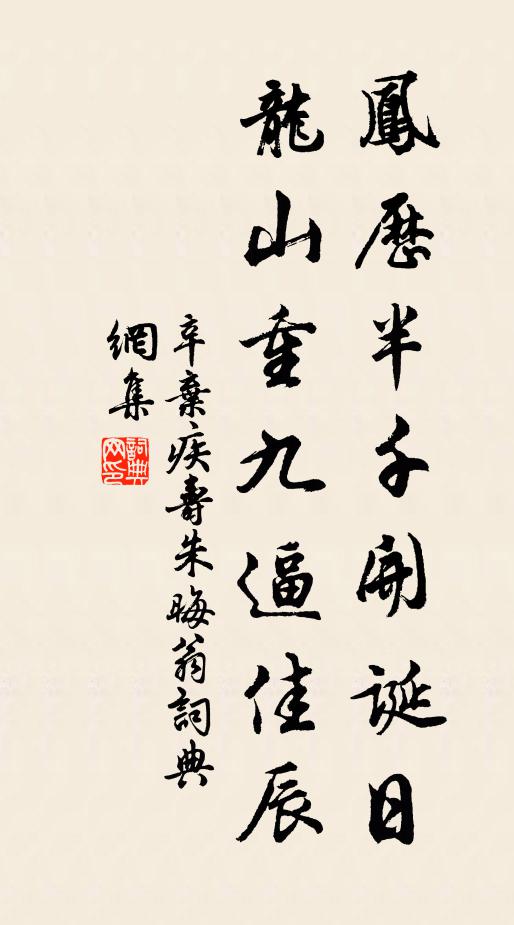 鳳歷半千開誕日
龍山重九逼佳辰
辛棄疾壽朱晦翁詞典
網集
詞典網印